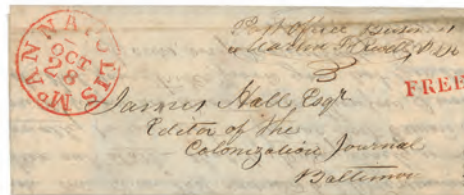 ANNAPOLIS Md
OCT
28
Post Office Business
FREE
James Hall Esqr
Editor of the
Colonization Journal
Baltimore